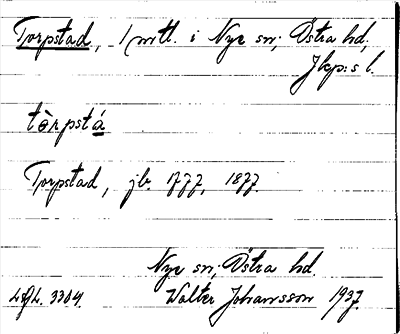 Torpstad, 1 mtl. i Nye sn, Östra hd,
Jkp:s l.
tòrpstá
Torpstad, jb. 1777, 1877.
Nye sn, Östra hd.
3304. Walter Johansson 1937.